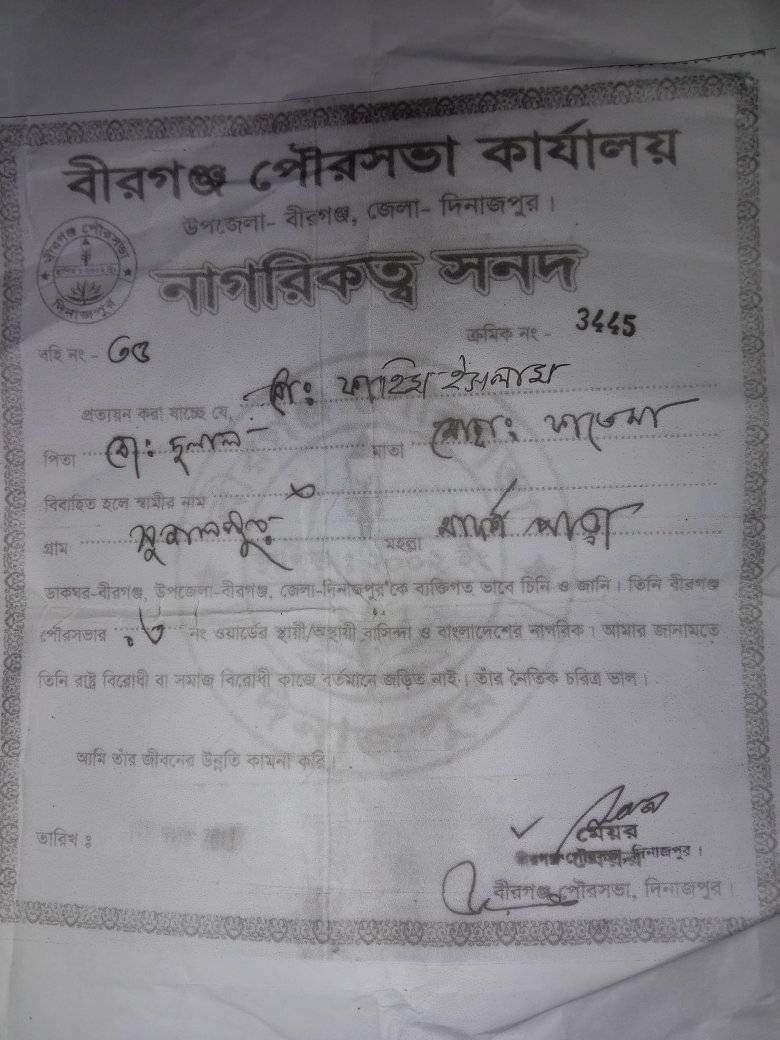 বীরগঞ্জ পৌরসভা কার্যালয়
উপজেলা- বীরগঞ্জ, জেলা- দিনাজপুর।
বীরগঞ্জ পৌরসভা
দিনাজপুর
নাগরিকত্ব সনদ
বহি নং - ক্রমিক নং - 3445
প্রত্যয়ন করা যাচ্ছে যে, মো: ফাহিম ইসলাম
পিতা মো: দুলাল মাতা মোছা: ফাতেমা
বিবাহিত হলে স্বামীর নাম ×
গ্রাম সুজালপুর মহল্লা পাড়া
ডাকঘর-বীরগঞ্জ, উপজেলা-বীরগঞ্জ, জেলা-দিনাজপুর'কে ব্যক্তিগত ভাবে চিনি ও জানি। তিনি বীরগঞ্জ
পৌরসভার নং ওয়ার্ডের স্থায়ী/অস্থায়ী বাসিন্দা ও বাংলাদেশের নাগরিক। আমার জানামতে
তিনি রাষ্ট্র বিরোধী বা সমাজ বিরোধী কাজে বর্তমানে জড়িত নাই। তাঁর নৈতিক চরিত্র ভাল।
আমি তাঁর জীবনের উন্নতি কামনা করি।
তারিখ :
মেয়র
দিনাজপুর।
বীরগঞ্জ পৌরসভা, দিনাজপুর।